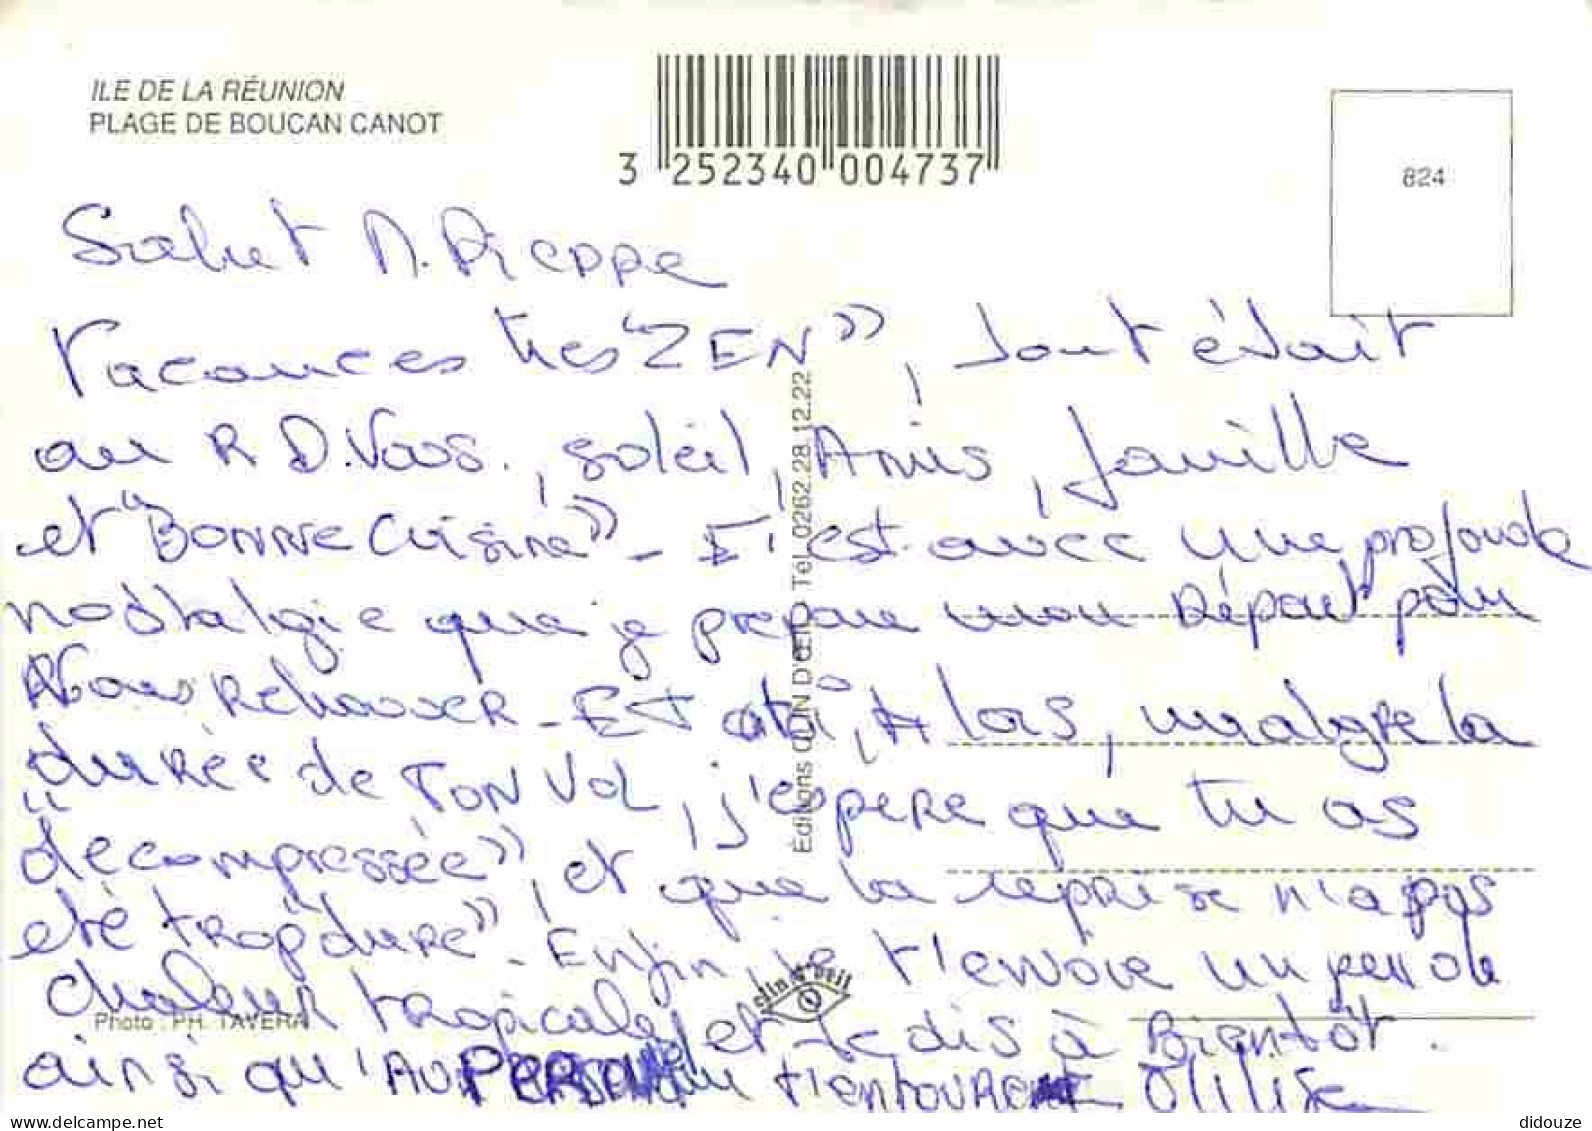 ILE DE LA RÉUNION
PLAGE DE BOUCAN CANOT
3 252340 004737
824
Salut M. Pierre
Vacances tres "ZEN", tout était
au R D.Vous., soleil, Amis, famille
et "BONNE Cuisine" - C'est avec une profonde
nostalgie que je prepare mon Départ pour
Vous Retrouver - Et toi, Alors, malgre la
durée de TON VOL, j'espere que tu as
"décompressée", et que la reprise n'a pas
eté trop "dure" - Enfin, je t'envoie un peu de
chaleur tropicale, et te dis à Bientôt.
ainsi qu'AU t'entourent
Éditions CLIN D'ŒIL Tél. 0262.28.12.22
clin d'œil
Photo : PH. TAVERA
delcampe.net
didouze